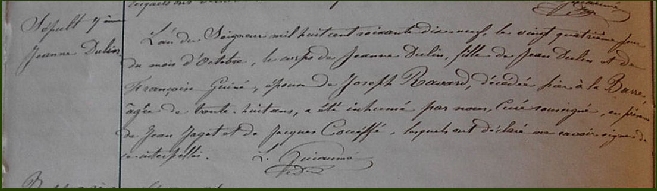 Sépult
Jeanne Dulin
L'an du Seigneur mil huit cent soixante dix neuf, le vingt quatrième jour
du mois d'Octobre, le corps de Jeanne Dulin, fille de Jean Dulin et de
Françoise Guiné, épouse de Joseph Navard, décédée hier à la Barre,
âgée de trente huit ans, a été inhumé par nous, Curé soussigné, en présence
de Jean Jaget et de Jacques lesquels ont déclaré ne savoir signer de
ce interpellés.